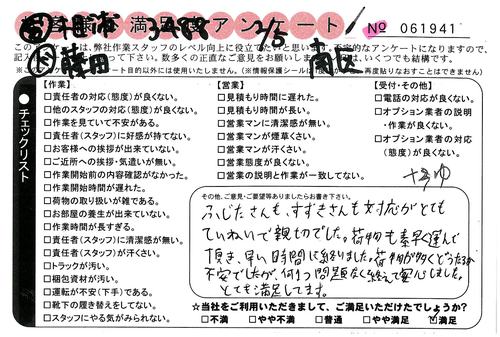 お客様 満足度アンケート
№ 061941
2/5 南区
藤田
このアンケートは、弊社作業スタッフのレベル向上に役立てたいと思います。不定的なアンケートになりますので、
記入 下さい。数多くの正直なご意見をお願いします。 は、いくつでも結構です。
※このアンケートは 目的以外には使用いたしません。※(情報保護シールに 再度貼りなおすことはできません)
チェックリスト
【作業】
□責任者の対応(態度)が良くない。
□他のスタッフの対応(態度)が良くない。
□作業を見ていて不安がある。
□責任者(スタッフ)に好感が持てない。
□お客様への挨拶が出来ていない。
□ご近所への挨拶・気遣いが無い。
□作業開始前の内容確認がなかった。
□作業開始時間が遅れた。
□荷物の取り扱いが雑である。
□お部屋の養生が出来ていない。
□作業時間が長すぎる。
□責任者(スタッフ)に清潔感が無い。
□責任者(スタッフ)が汗くさい。
□トラックが汚い。
□梱包資材が汚い。
□運転が不安(下手)である。
□靴下の履き替えをしてない。
□スタッフにやる気がみられない。
【営業】
□見積もり時間に遅れた。
□見積もり時間が長い。
□営業マンに清潔感が無い。
□営業マンが煙草くさい。
□営業マンが汗くさい。
□営業態度が良くない。
□営業の説明と作業が一致してない。
【受付・その他】
□電話の対応が良くない。
□オプション業者の説明
・作業が良くない。
□オプション業者の対応
(態度)が良くない。
その他、ご意見・ご要望等ありましたらお書き下さい。
ふじたさんも、すずきさんも対応がとても
ていねいで親切でした。荷物も素早く運んで
頂き、早い時間に終りました。荷物が多くどうなるか
不安でしたが、何1つ問題なく終えて安心しました。
とても満足してます。
☆当社をご利用いただきまして、ご満足いただけたでしょうか?
□不満 □やや不満 □普通 □やや満足 ☑満足